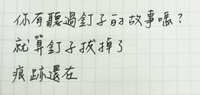 你有聽過釘子的故事嗎？
就算釘子拔掉了
痕跡還在